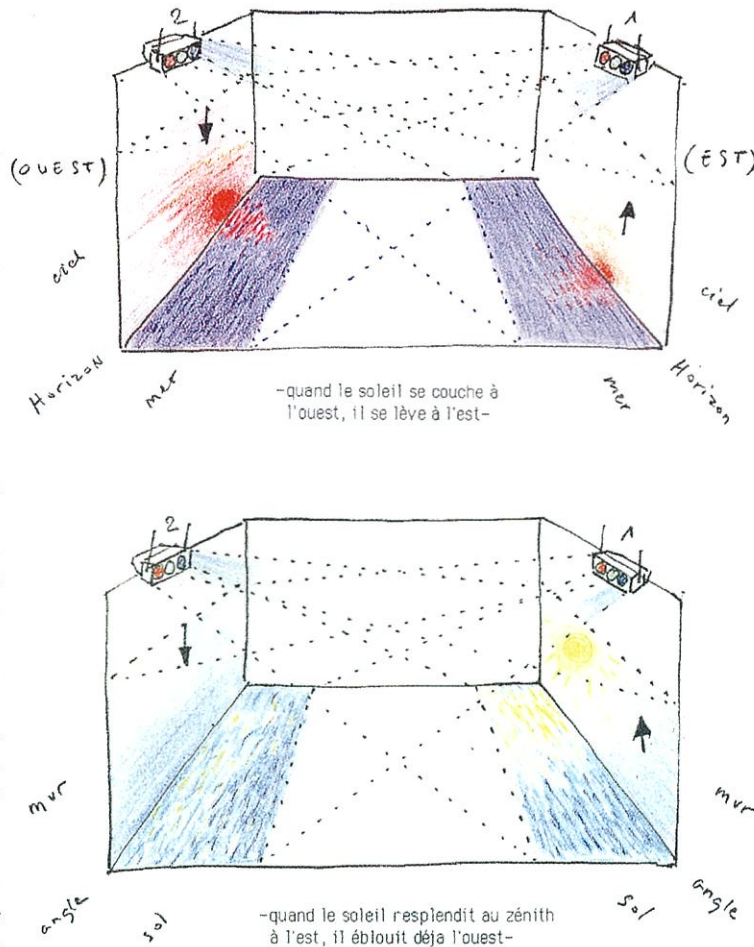 2
1
(OUEST)
(EST)
ciel
ciel
Horizon
mer
mer
Horizon
-quand le soleil se couche à
l'ouest, il se lève à l'est-
2
1
mur
mur
angle
sol
sol
angle
-quand le soleil resplendit au zénith
à l'est, il éblouit déja l'ouest-